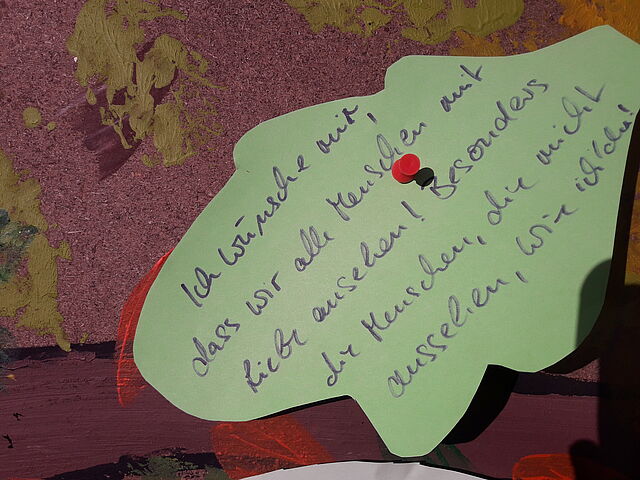 Ich wünsche mir,
dass wir alle Menschen mit
Liebe ansehen! Besonders
die Menschen, die nicht
aussehen, wie ich/du!